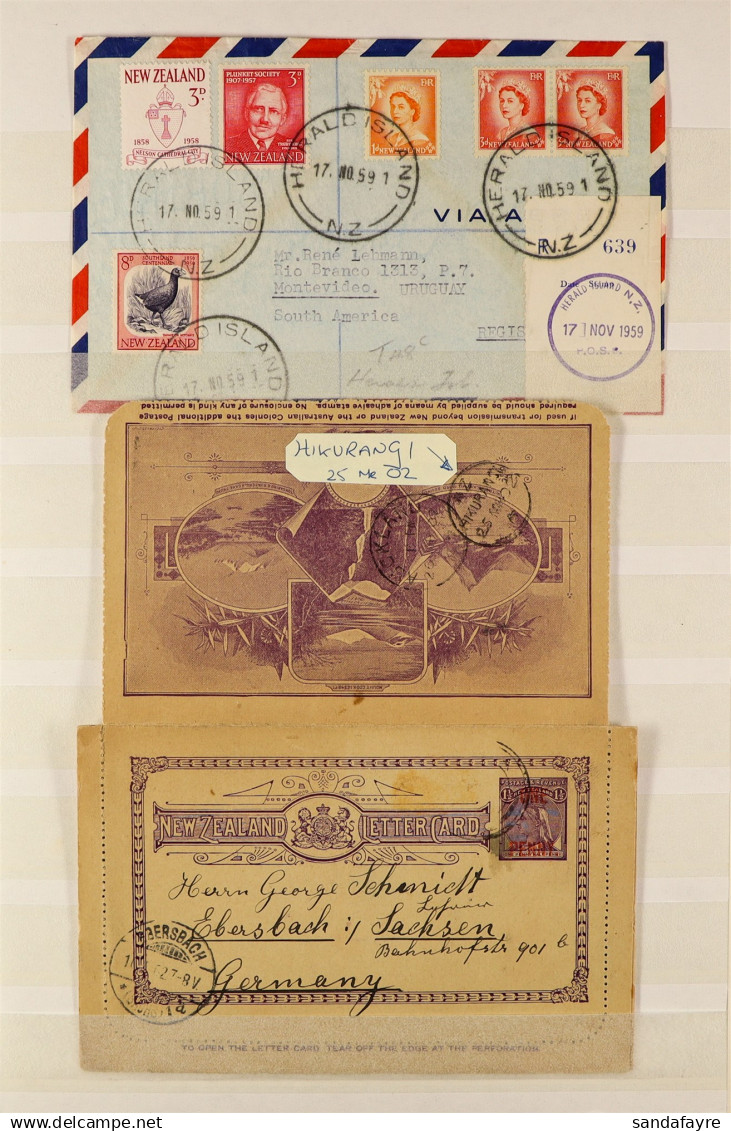 NEW ZEALAND
3D.
1858 1958
NELSON CATHEDRAL CITY
PLUNKET SOCIETY
1907-1957
3D
NEW ZEALAND
E R
1d NEW ZEALAND
E R
3d NEW ZEALAND
E R
NEW ZEALAND
HERALD ISLAND
17. NO. 59 1
N.Z
HERALD ISLAND
17. NO. 59 1
N.Z
HERALD ISLAND
17. NO. 59 1
N.Z
VIA A
R
639
Mr. René Lehmann,
Rio Branco 1313, P.7.
Montevideo. URUGUAY
South America
REGIS
Date Stamp
HERALD ISLAND N.Z.
17 NOV 1959
8D
SOUTHLAND
CENTENNIAL
NEW ZEALAND
ERALD ISLAND
17. NO. 59 1
required should be supplied by means of adhesive stamps. No enclosure of any kind is permitted
if used for transmission beyond New Zealand or the Australian Colonies the additional Postage
HIKURANGI
25 MR 02
NEW ZEALAND LETTER CARD
1½ 1½
PENNY
Herrn George Schmidt
Ebersbach i/ Sachsen,
Bahnhofstr 901 b
Germany
EBERSBACH
2 7-8V
TO OPEN THE LETTER CARD TEAR OFF THE EDGE AT THE PERFORATION.
sandafayre